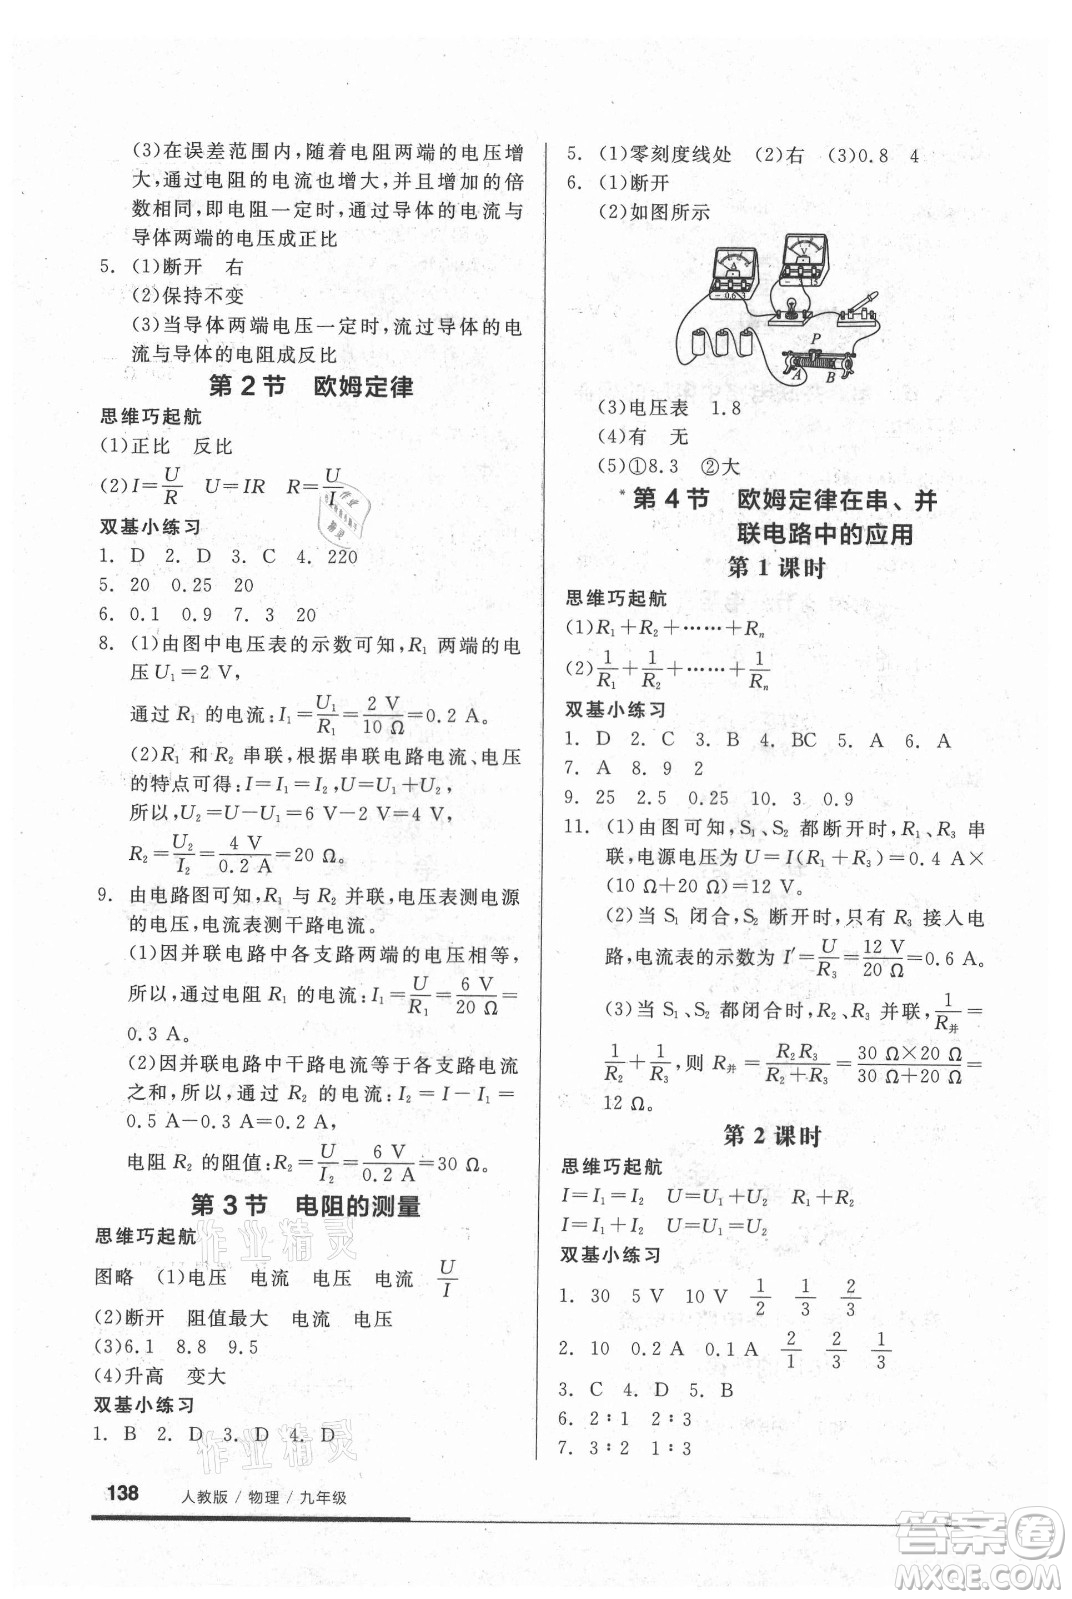 (3)在误差范围内,随着电阻两端的电压增
大,通过电阻的电流也增大,并且增大的倍
数相同,即电阻一定时,通过导体的电流与
导体两端的电压成正比
5. (1)断开 右
(2)保持不变
(3)当导体两端电压一定时,流过导体的电
流与导体的电阻成反比
第2节 欧姆定律
思维巧起航
(1)正比 反比
(2)I=U/R U=IR R=U/I
双基小练习
1. D 2. D 3. C 4. 220
5. 20 0.25 20
6. 0.1 0.9 7. 3 20
8. (1)由图中电压表的示数可知,R₁ 两端的电
压U₁=2 V,
通过 R₁ 的电流:I₁=U₁/R₁=2 V/10 Ω=0.2 A。
(2)R₁ 和 R₂ 串联,根据串联电路电流、电压
的特点可得:I=I₁=I₂,U=U₁+U₂,
所以,U₂=U-U₁=6 V-2 V=4 V,
R₂=U₂/I₂=4 V/0.2 A=20 Ω。
9. 由电路图可知,R₁ 与 R₂ 并联,电压表测电源
的电压,电流表测干路电流。
(1)因并联电路中各支路两端的电压相等,
所以,通过电阻 R₁ 的电流:I₁=U/R₁=6 V/20 Ω=
0.3 A。
(2)因并联电路中干路电流等于各支路电流
之和,所以,通过 R₂ 的电流:I₂=I-I₁=
0.5 A-0.3 A=0.2 A,
电阻 R₂ 的阻值:R₂=U/I₂=6 V/0.2 A=30 Ω。
第3节 电阻的测量
思维巧起航
图略 (1)电压 电流 电压 电流 U/I
(2)断开 阻值最大 电流 电压
(3)6.1 8.8 9.5
(4)升高 变大
双基小练习
1. B 2. D 3. D 4. D
138 人教版/物理/九年级
5. (1)零刻度线处 (2)右 (3)0.8 4
6. (1)断开
(2)如图所示
A
V
- 0.6 3
P
A B
(3)电压表 1.8
(4)有 无
(5)①8.3 ②大
*第4节 欧姆定律在串、并
联电路中的应用
第1课时
思维巧起航
(1)R₁+R₂+……+Rₙ
(2)1/R₁+1/R₂+……+1/Rₙ
双基小练习
1. D 2. C 3. B 4. BC 5. A 6. A
7. A 8. 9 2
9. 25 2.5 0.25 10. 3 0.9
11. (1)由图可知,S₁、S₂ 都断开时,R₁、R₃ 串
联,电源电压为 U=I(R₁+R₃)=0.4 A×
(10 Ω+20 Ω)=12 V。
(2)当 S₁ 闭合,S₂ 断开时,只有 R₃ 接入电
路,电流表的示数为 I′=U/R₃=12 V/20 Ω=0.6 A。
(3)当 S₁、S₂ 都闭合时,R₂、R₃ 并联,1/R并=
1/R₂+1/R₃,则 R并=R₂R₃/(R₂+R₃)=30 Ω×20 Ω/(30 Ω+20 Ω)=
12 Ω。
第2课时
思维巧起航
I=I₁=I₂ U=U₁+U₂ R=R₁+R₂
I=I₁+I₂ U=U₁=U₂
双基小练习
1. 30 5 V 10 V 1/2 1/3 2/3
2. 10 0.2 A 0.1 A 2/1 2/3 1/3
3. C 4. D 5. B
6. 2∶1 2∶3
7. 3∶2 1∶3
作业精灵
作业精灵
答案卷
MXQE.COM